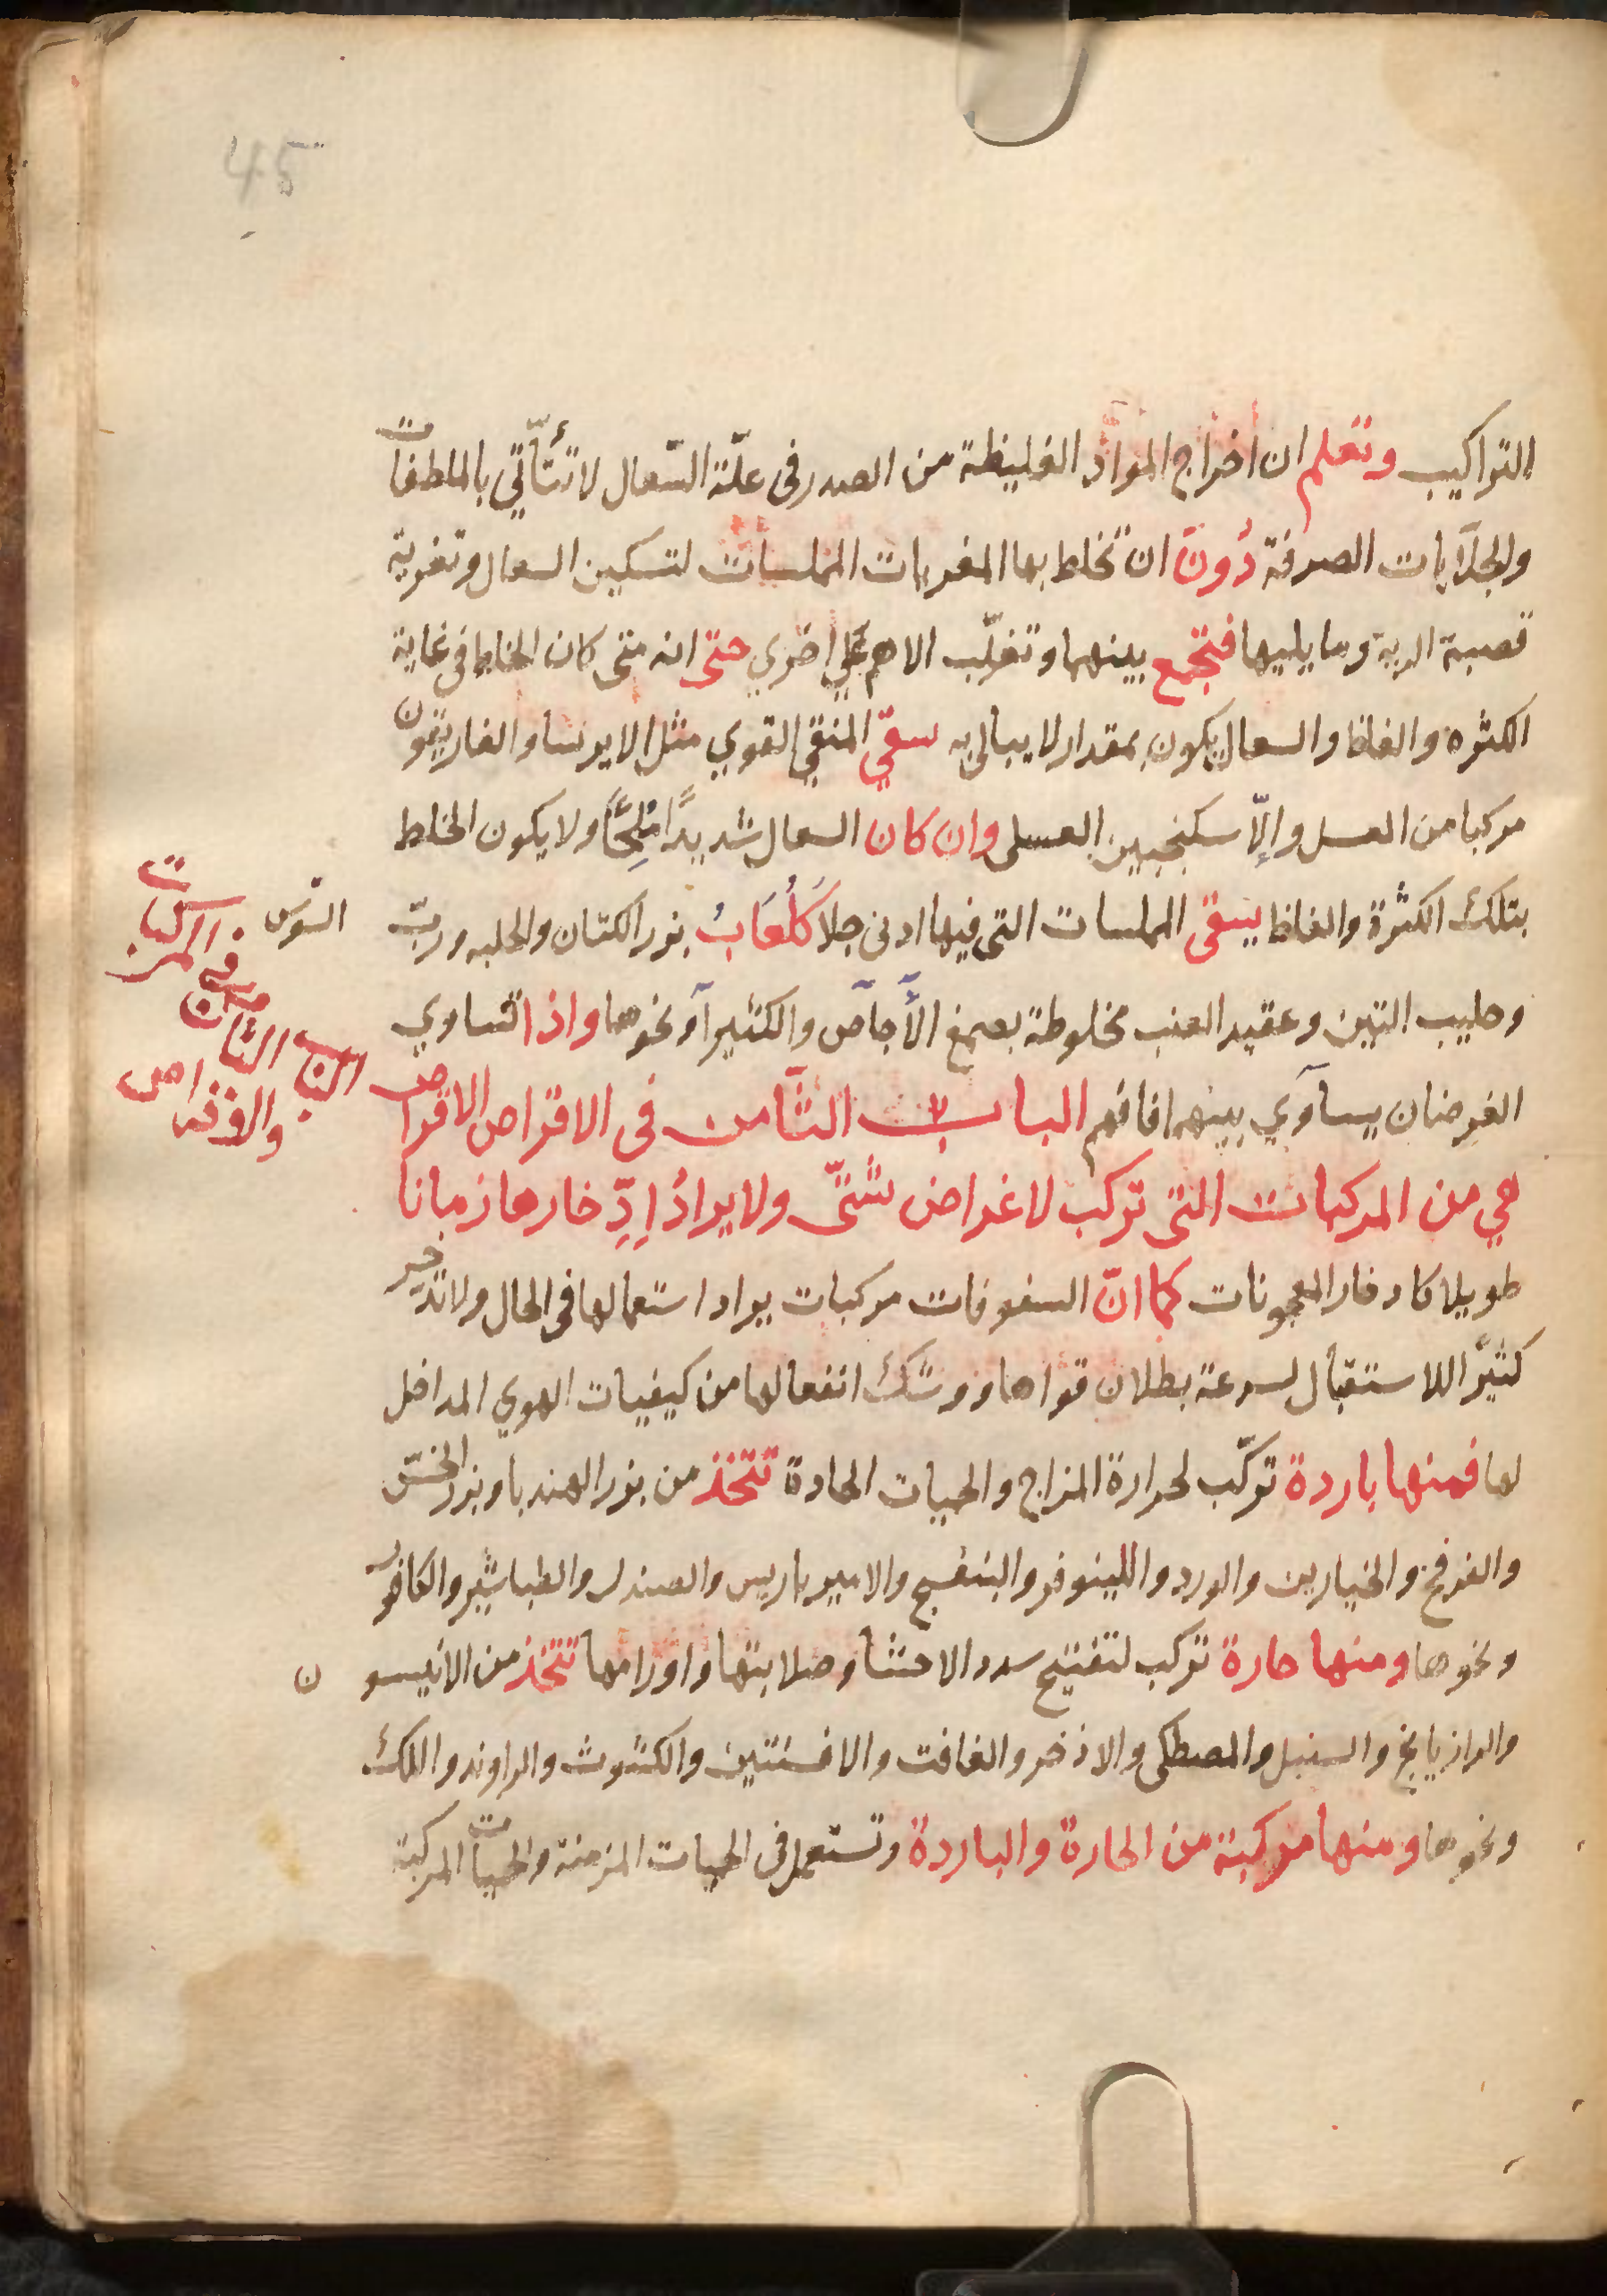 45
التراكيب وتعلم ان اخراج المواد الغليظة من الصدر فى علّة السّعال لا تتأتّي بالملطفات
والجلآيات الصرفة دُونَ ان تخلط بها المغريات المملسات لتسكين السعال وتغرية
قصبة الرية وما يليها فتجمع بينهما وتغلّب الاهم علي اخري حتى انه متى كان الخلط فى غاية
الكثره والغلظ والسعال يكون بمقدار لا يبالى به سقيّ المنقي القوي مثل الايرسا والغاريقون
مركبا من العسل وإلّا سكنجبين العسلى وان كان السعال شديدًا مُلِحًّا ولا يكون الخلط
بتلك الكثرة والغلظ يسقى المملسات التى فيها ادنى جلا كَلُعَابُ بزر الكتان والحلبه وربّ السّوس
وحليب التين وعقيد العنب مخلوطة بصمغ الأجاص والكثيرآ ونحوها واذا تساوي
الغرضان يساوي بينهما فافهم الباب الثّامن فى الاقراص الاقراص
هي من المركبات التى تركب لاغراض شتّى ولا يرادُ اِدِّخارها زمانا
طويلا كادخار المعجونات كما انّ السفوفات مركبات يراد استعمالها فى الحال ولا تدخر
كثيرًا للاستقبال لسرعة بطلان قواها ووشك انفعالها من كيفيات الهوي المداخل
لها فمنها باردة تركّب لحرارة المزاج والحميات الحادة تتخذ من بزر الهندبا وبزر الخسّ
والفرفخ والخيارين والورد واللينوفر والبنفسج والاميرباريس والصندل والطباشير والكافور
ونحوها ومنها حارة تركب لتفتيح سدد الاحشا وصلابتها واورامها تتخذ من الانيسون
والرازيانج والسنبل والمصطكى والاذخر والغافت والافسنتين والكشوث والراوند واللك
ونحوها ومنها مركبة من الحارة والباردة وتستعمل فى الحميات المزمنة والحميات المركبة
الباب الثّامن فى المركبات
والاقراص